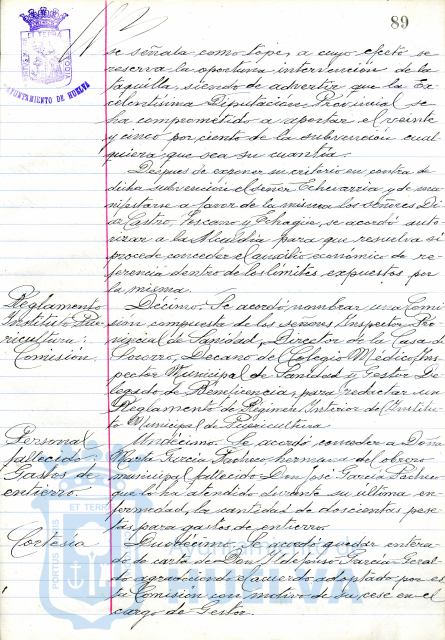 89
AYUNTAMIENTO DE HUELVA
se señala como tope, a cuyo efecto se
reserva la oportuna intervención de la
taquilla, siendo de advertir que la Ex-
celentísima Diputación Provincial se
ha comprometido a aportar el veinte
y cinco por ciento de la subvención cual
quiera que sea su cuantía.
Después de exponer su criterio en contra de
dicha subvención el señor Echevarria y de ma
nifestarse a favor de la misma los señores Di
Castro, Toscano y Echagüe, se acordó auto
rizar a la Alcaldía para que resuelva si
procede conceder el auxilio económico de re-
ferencia dentro de los límites expuestos por
la misma.
Reglamento
Instituto Pue
ricultura:
Comisión.
Décimo. Se acordó nombrar una Comi
sión compuesta de los señores Inspector Pro
vincial de Sanidad, Director de la Casa de
Socorro, Decano del Colegio Médico, Ins
pector Municipal de Sanidad y Gestor De
legado de Beneficencia, para redactar un
Reglamento de Régimen Interior del Institu
to Municipal de Puericultura.
Personal
fallecido
Gastos de
entierro.
Undécimo. Se acordó conceder a Doña
Marta García Pacheco hermana del obrero
municipal fallecido Don José García Pacheco
que lo ha atendido durante su última en
fermedad, la cantidad de doscientas pese
tas para gastos de entierro.
Cortesía
Duodécimo. Se acordó quedar entera
do de carta de Don Ildefonso García Geral
do agradeciendo el acuerdo adoptado por es
ta Comisión con motivo de su cese en el
cargo de Gestor.
Ayuntamiento de
HUELVA